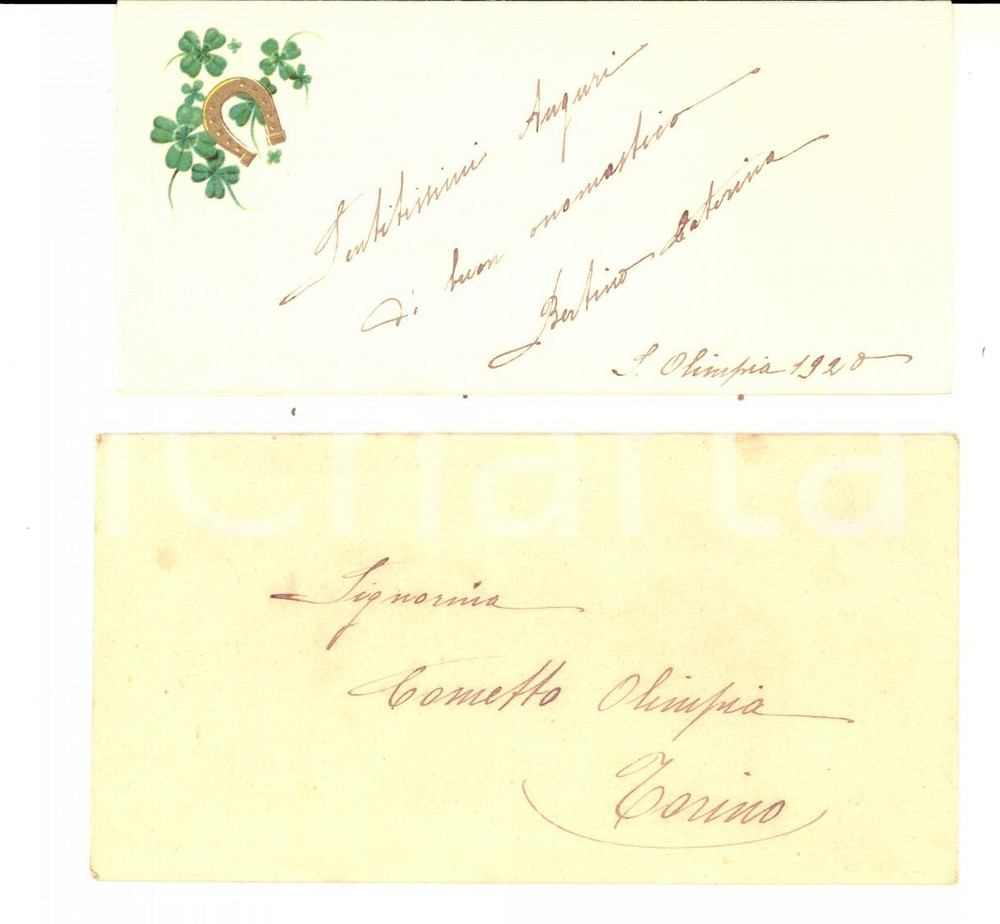 Sentitissimi Auguri
di buon onomastico
Bertino Caterina
S. Olimpia 1920
Charta
Signorina
Cometto Olimpia
Torino